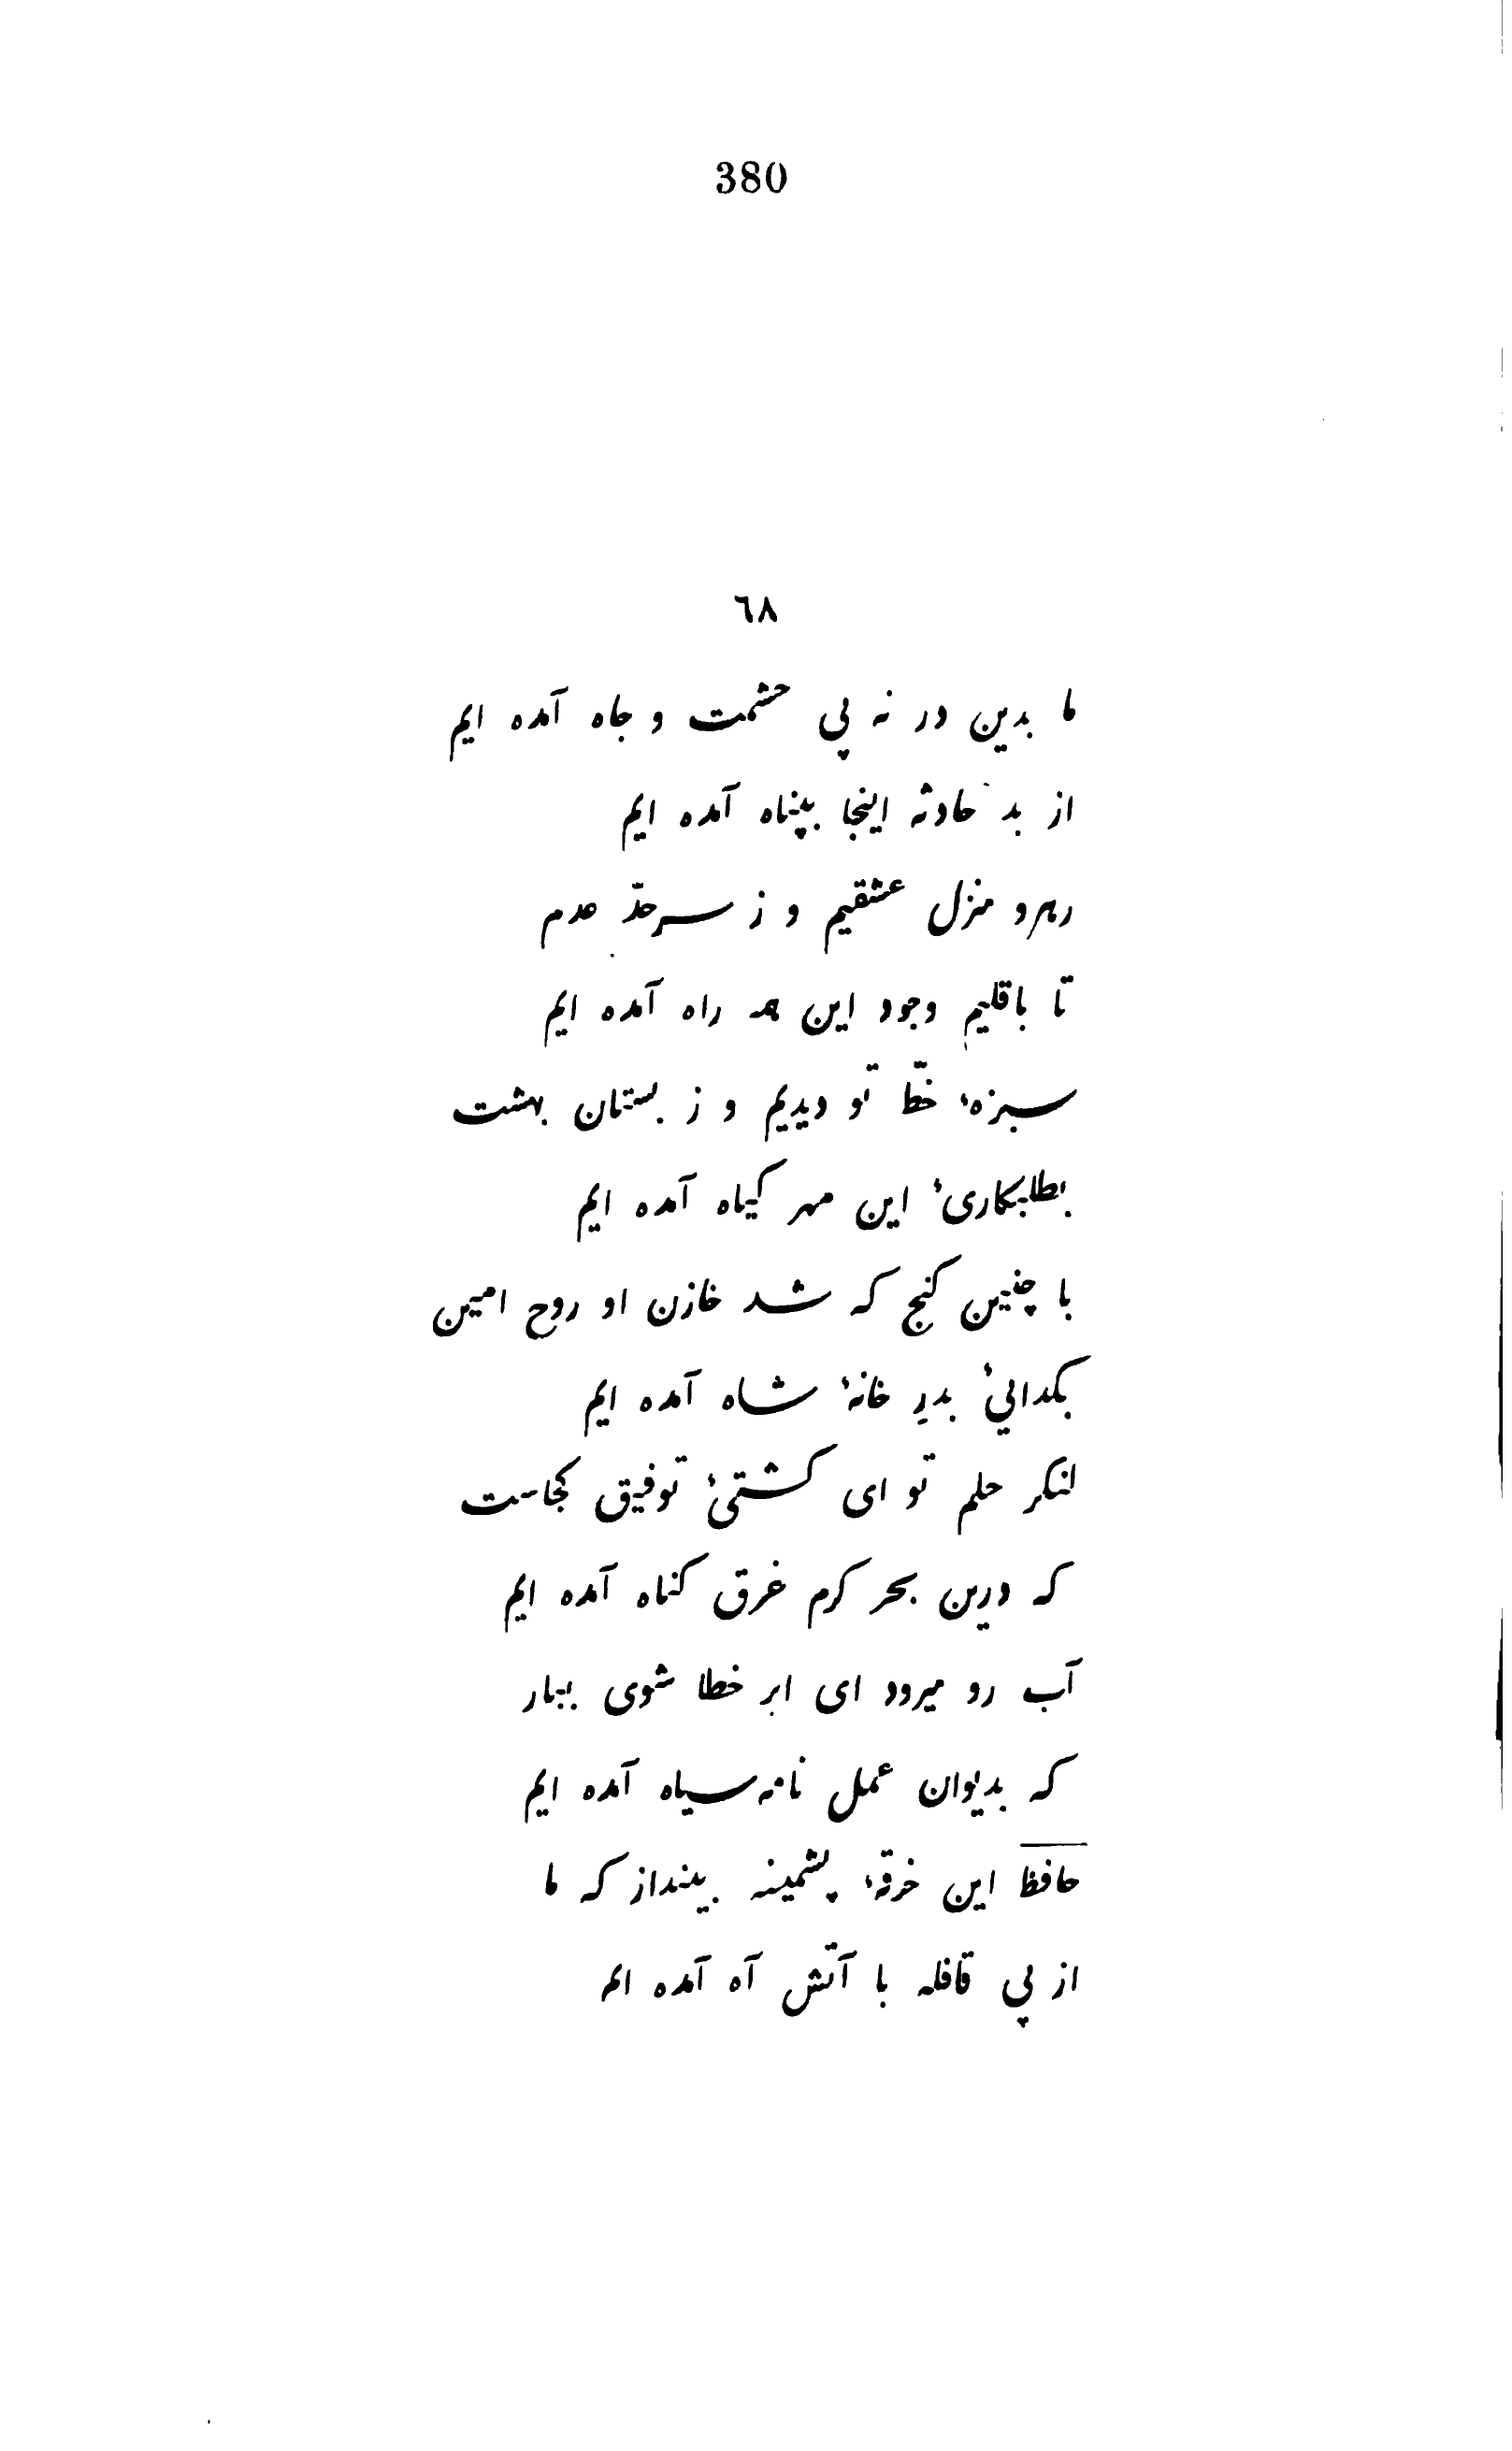 380
٦٨
ما بدین در نه پی حشمت و جاه آمده ایم
از بد حادثه اینجا بپناه آمده ایم
رهرو منزل عشقیم و ز سرحدّ عدم
تا باقلیمِ وجود این همه راه آمده ایم
سبزهٔ خطّ تو دیدیم و ز بستان بهشت
بطلبکاریٔ این مهر گیاه آمده ایم
با چنین گنج که شد خازن او روح امین
بگداییٔ بدرِ خانهٔ شاه آمده ایم
لنگر حلم تو ای کشتیٔ توفیق کجاست
که درین بحر کرم غرق گناه آمده ایم
آب رو میرود ای ابر خطا شوی ببار
که بدیوان عمل نامه سیاه آمده ایم
حافظ این خرقهٔ پشمینه بینداز که ما
از پی قافله با آتش آه آمده ایم